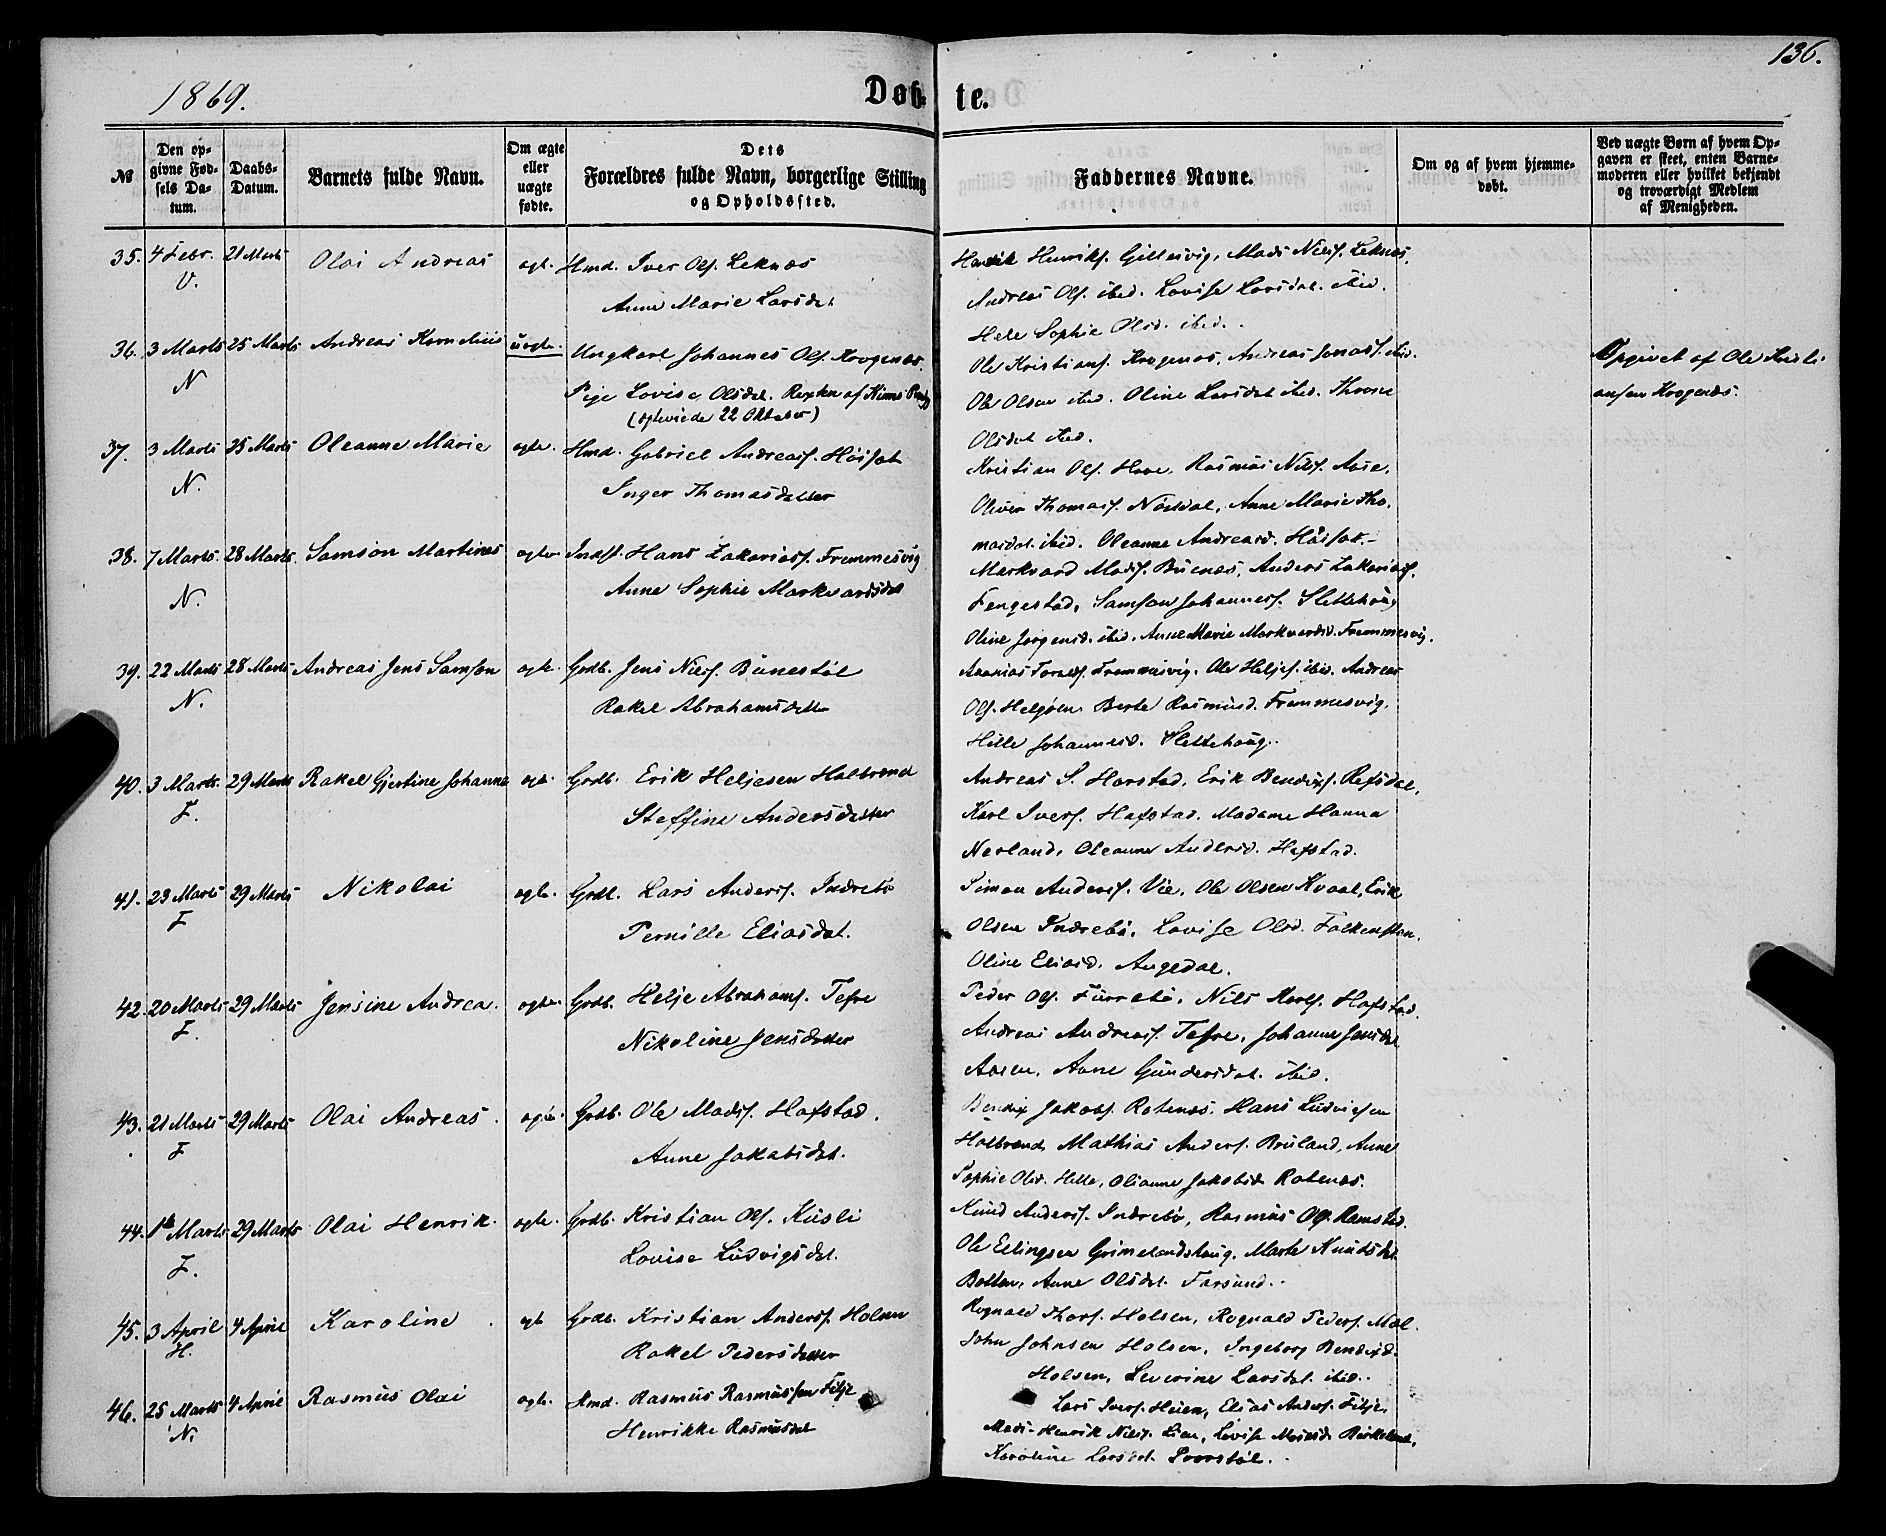 136.
1869.
Døb- te.
№
Den op-
givne Fød-
sels Da-
tum.
Daabs-
Datum.
Barnets fulde Navn.
Om ægte
eller
uægte
fødte.
Dets
Forældres fulde Navn, borgerlige Stilling
og Opholdssted.
Faddernes Navne.
Om og af hvem hjemme-
døbt.
Ved uægte Børn af hvem Op-
gaven er skeet, enten Barne-
moderen eller hvilket bekjendt
og troværdigt Medlem
af Menigheden.
35. 4 Febr. 21 Marts Olai Andreas ægte Hmd. Iver Ols. Leknæs
V.
Anne Marie Larsdt.
Henrik Henriks. Gillesvig, Mads Niels. Leknæs,
Andreas Ols. ibid. Lovise Larsdat. ibid.
Hele Sophie Olsd. ibid.
36. 3 Marts 25 Marts Andreas Kornelius uægte. Ungkarl Johannes Ols. Krogenæs.
N
Pige Lovise Olsdat. af Kinns
(ægteviede 22 Oktober)
Ole Kristians. Krogenæs, Andreas Jonass. ibid.
Ole Olsen ibid. Oline Larsdat ibid. Throne
Olsdat ibid.
Opgivet af Ole Kristi
ansen Krogenæs.
37. 3 Marts 25 Marts Oleanne Marie ægte. Hmd. Gabriel Andreass. Høisæt
N.
Inger Thomasdatter
Kristian Ols. Hove, Rasmus Niels. Aase,
Oliver Thomass. Nøsdal, Anne Marie Tho.
masdat. ibid. Oleanne Andreasd. Høisæt.
38. 7 Marts 28 Marts. Samson Martines ægte Indst. Hans Zakariass. Fremmesvig
N.
Anne Sophie Markvardsdat
Markvard Mads. Buenæs, Anders Zakariass.
Fengestad, Samson Johanness. Slettehoug
Oline Jørgensd. ibid. Anne Marie Markvardsd. Fremmesvig.
39. 22 Marts 28 Marts Andreas Jens Samson ægte. Grdb. Jens Niels. Bunestøl
N.
Rakel Abrahamsdatter
Fremmesvig. Ole Heljes. ibid. Andreas
Ols. Helgøen Berte Rasmusd. Fremmesvig.
Hille Johannesd. Slettehoug.
40. 3 Marts. 29 Marts Rakel Gjertine Johanne ægte Grdb. Erik Heljesen Halbrend
F.
Steffine Andersdatter
Andreas S. Harstad, Erik Bendixs. Refsdal,
Karl Ivers. Hafstad. Madame Hanna
Nerland, Oleanne Andersd. Hafstad.
41. 23 Marts 29 Marts Nikolai ægte. Grdb. Lars Anders. Indrebø
F
Pernille Eliasdat.
Simon Anders. Vie, Ole Olsen Kvaal, Erik
Olsen Indrebø, Lovise Olsd. Falkensten.
Oline Eliasd. Angedal.
42. 20 Marts 29 Marts Jensine Andrea. ægte Grdb. Helje Abrahams. Tefre
F.
Nikoline Jensdatter
Peder Ols. Furrebø, Nils Karls. Hafstad.
Andreas Andreass. Tefre, Johanne Jensdat
Aasen, Anne Gundersdat. ibid.
43. 21 Marts 29 Marts Olai Andreas. ægte. Grdb. Ole Mads. Hafstad.
F
Anne Jakobsdat.
Bendix Jakobs. Rotenæs. Hans Ludvigsen
Halbrend. Mathias Anders. Bruland, Anne
Sophie Olsd. Hille, Olianne Jakobsd. Rotenæs.
44. Marts 29 Marts Olai Henrik. ægte. Grdb. Kristian Ols. Kusli
F.
Lovise Ludvigsdat.
Knud Anders. Indrebø, Rasmus Ols. Ramstad.
Ole Erlingsen Grimelandshaug. Marte Knudsdat
Botten, Anne Olsdat. Farsund.
45. 3 April 4 April Karoline. ægte Grdb. Kristian Anders. Holsen
H.
Rakel Pedersdatter
Rognald Thors. Holsen, Rognald Peders. Mol.
John Johnsen Holsen, Ingeborg Bendixd.
Holsen, Severine Larsdat. ibid.
46. 25 Marts 4 April Rasmus Olai ægte. Hmd. Rasmus Rasmussen Fitje
N.
Henrikke Rasmusdat
Lars Ivers. Heien, Elias Anders. Fitje.
Mads Henrik Niels. Lien, Lovise Madsd. Birkeland,
Karoline Larsdat.